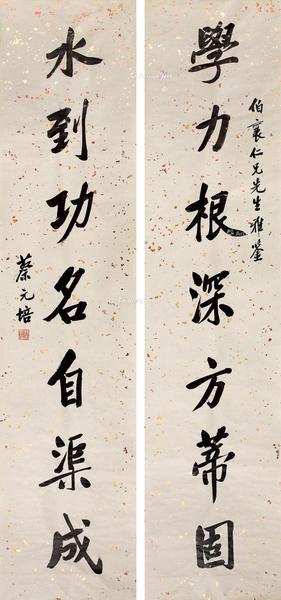 學力根深方蒂固
伯襄仁兄先生雅鉴
水到功名自渠成
蔡元培